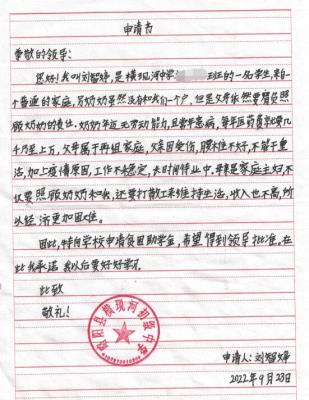 申请书
尊敬的领导：
您好！我叫刘智婷，是横现河中学 班的一名学生，来自一
个普通的家庭，另奶奶虽然没有和我们一个户，但是父母依然要肩负照
顾奶奶的责任。奶奶年迈无劳动能力，且常年患病，每年医药费就要几
千乃至上万，父母属于再组家庭，父亲因受伤，腰不好，不能干重
活，加上疫情原因，工作不稳定，长时间待业中，母亲是家庭主妇不
仅要照顾奶奶和我，还要打散工来维持生活，收入也不高，所
以经济更加困难。
因此，特向学校申请贫困助学金，希望得到领导批准。在
此我承诺我以后要好好学习。
此致
敬礼！
略阳县横现河初级中学
申请人：刘智婷
2022年9月23日